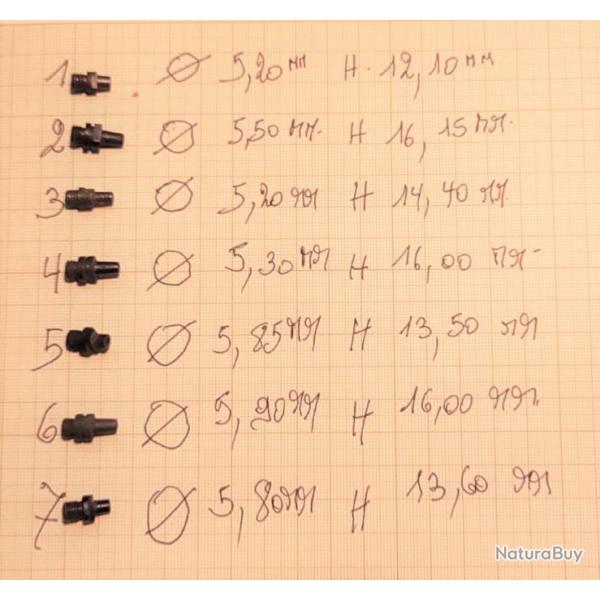 1 Ø 5,20 mm H. 12,10 mm
2 Ø 5,50 mm. H 16,15 mm.
3 Ø 5,20 mm H 14,40 mm.
4 Ø 5,30 mm H 16,00 mm
5 Ø 5,85 mm H 13,50 mm
6 Ø 5,90 mm H 16,00 mm.
7 Ø 5,80 mm H 13,60 mm
NaturaBuy